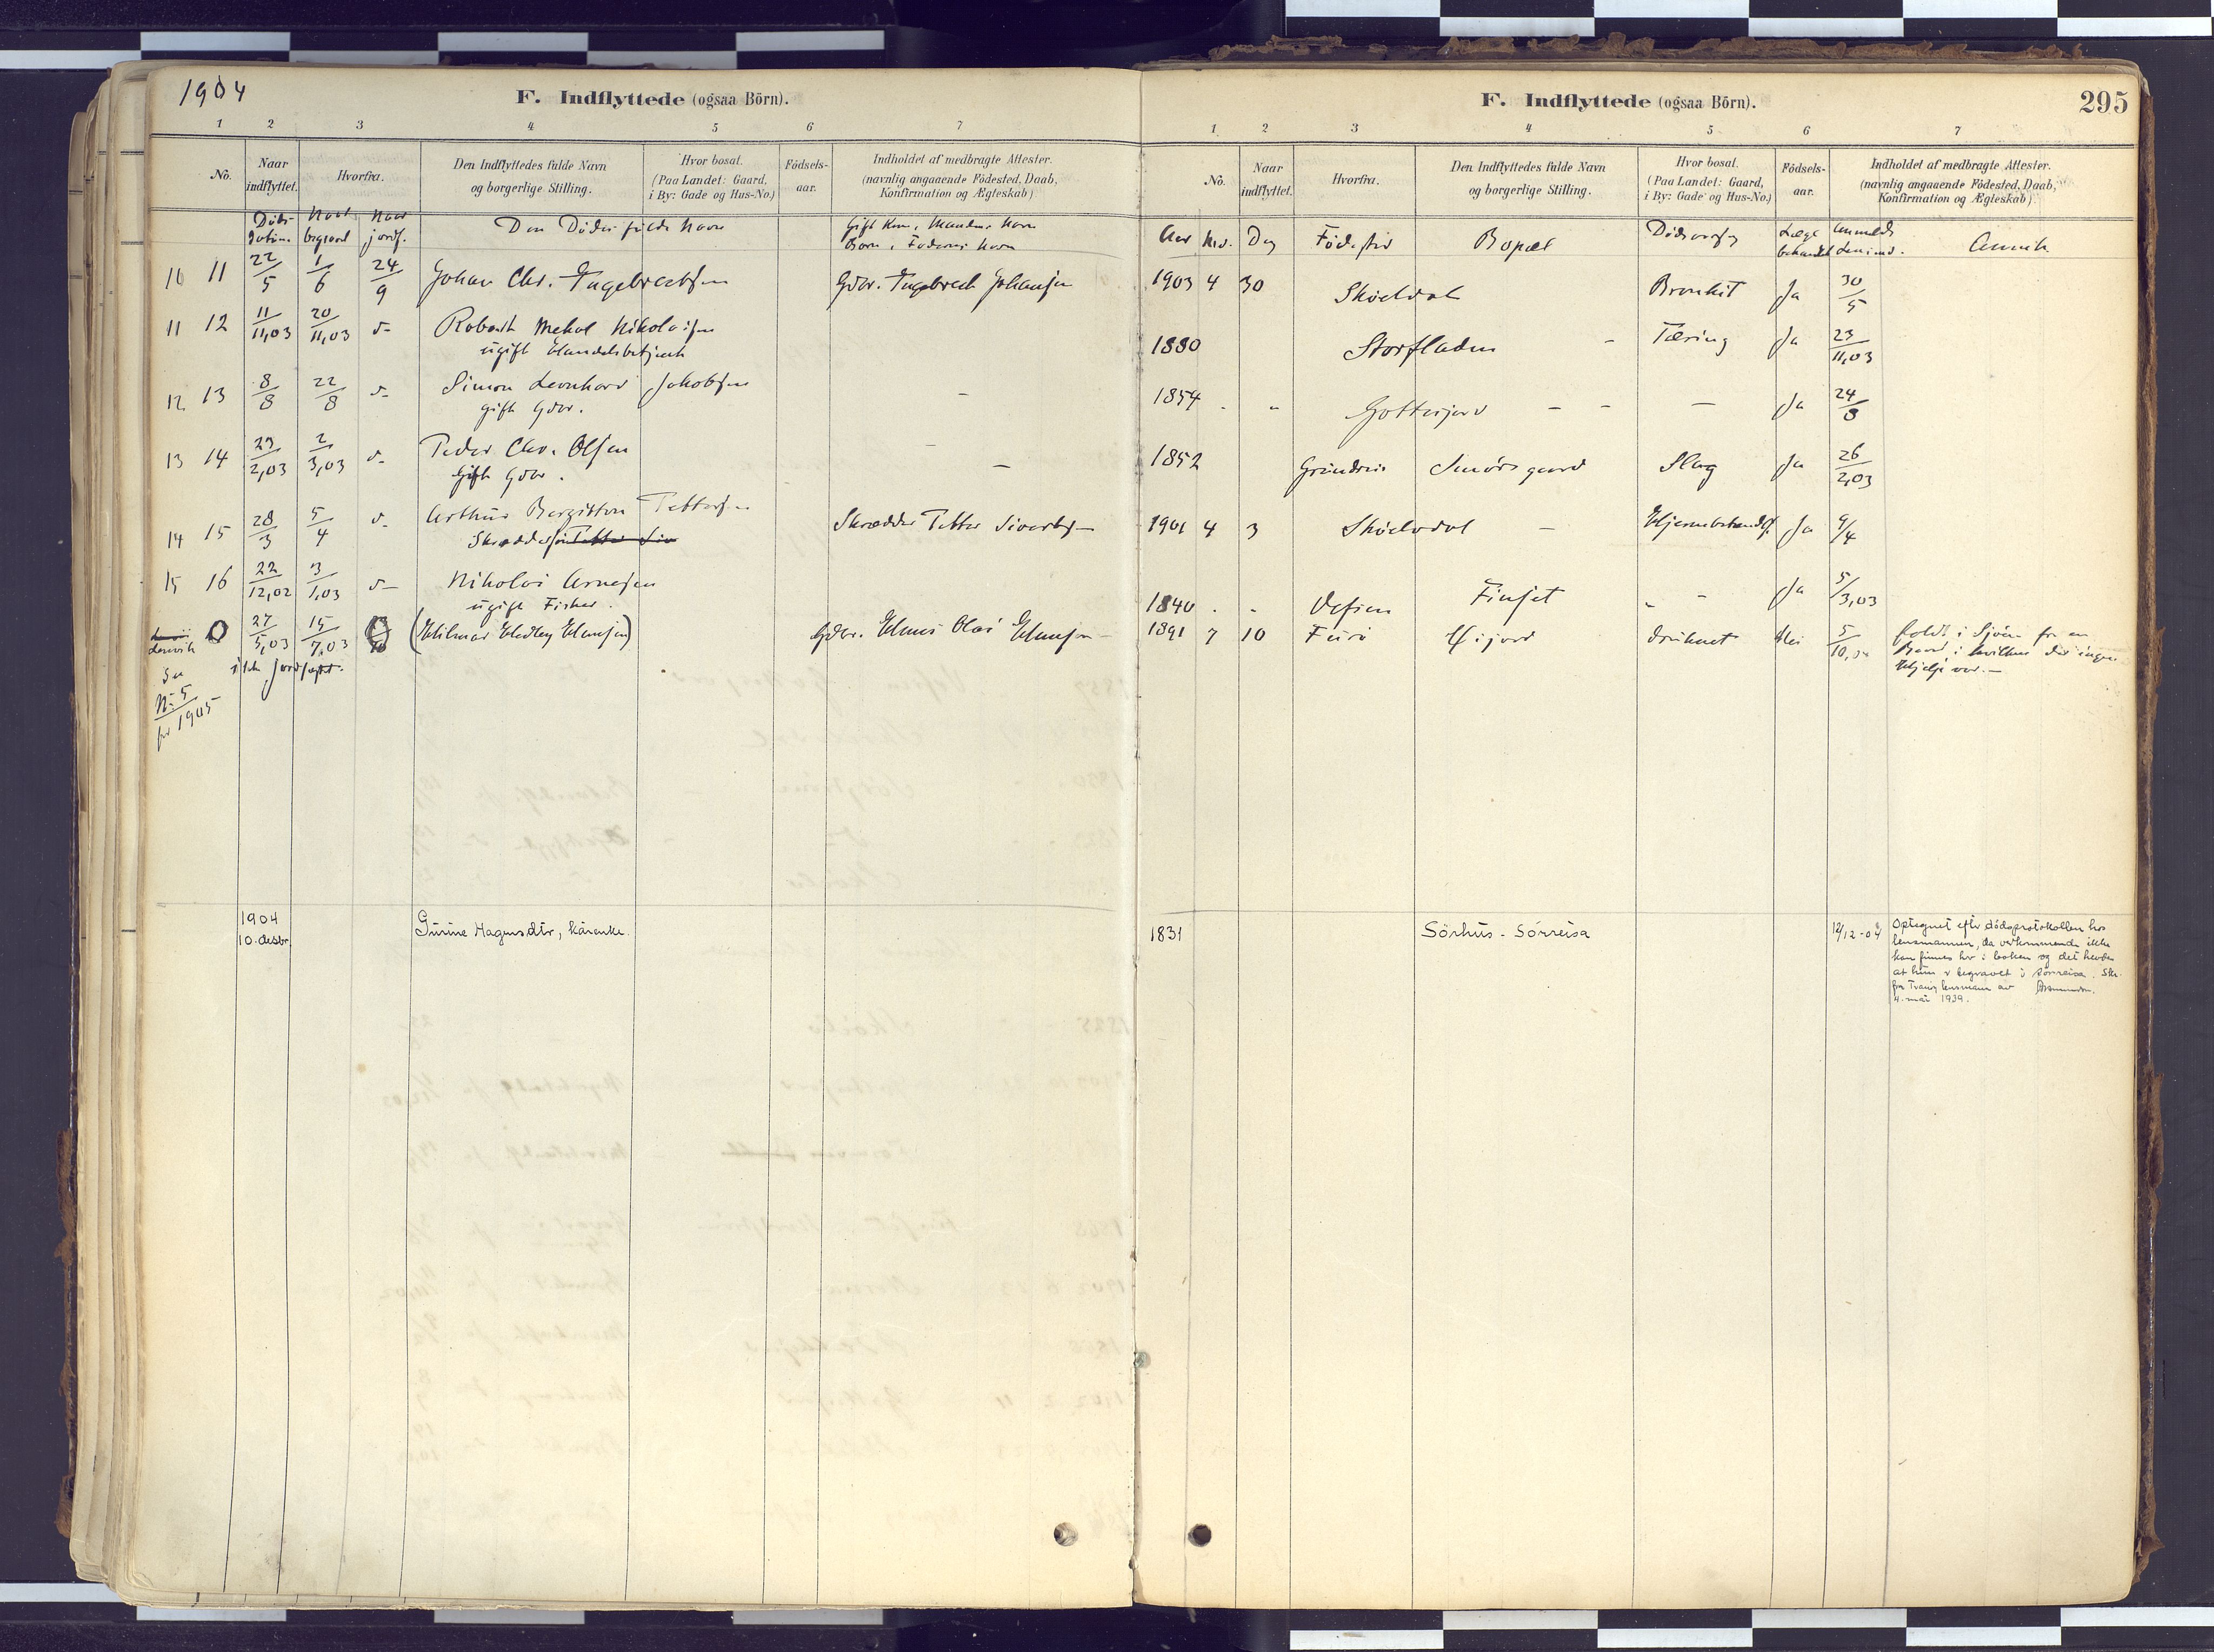 1904
F. Indflyttede (ogsaa Börn).
1 2 3 4 5 6 7
No.
Naar indflyttet.
Hvorfra.
Den Indflyttedes fulde Navn og borgerlige Stilling.
Hvor bosat. (Paa Landet: Gaard, i By: Gade og Hus-No.)
Födsels-aar.
Indholdet af medbragte Attester. (navnlig angaaende Födested, Daab, Konfirmation og Ægteskab)
Naar begravet
Naar jordf.
Den Dödes fulde Navn
Gift Kone, Mandens Navn
Barn, Faderens Navn
10 11 22/5 1/6 24/9 Johan Chr. Ingebrectsen Gdbr. Ingebrect Johansen
11 12 11/11,03 20/11,03 d- Nikolaisen
ugift Handelsbetjent
12 13 8/8 22/8 d- Simon Leonhard Jakobsen -
gift Gdbr.
13 14 23/2,03 2/3,03 d- Peder Chr. Olsen -
Gift Gdbr. -
14 15 28/3 5/4 d- Arthur Bergitton Tettersen Skrædder Tetter Sivertsen
Skrædder
15 16 22/12,02 3/1,03 d- Nikolai Arnesen
ugift Fisker.
Lenvik 0 27/5,03 15/7,03 (Hilmar Hedley Hansen) Gdbr. Hans Olai Hansen
ikke jordfæstet.
Se
N: 5
for 1905
1904
10. desbr. Gurine Magnusdtr, kårenke.
F. Indflyttede (ogsaa Börn).
295
1 2 3 4 5 6 7
No.
Naar indflyttet.
Hvorfra.
Den Indflyttedes fulde Navn og borgerlige Stilling.
Hvor bosat. (Paa Landet: Gaard, i By: Gade og Hus-No.)
Födsels-aar.
Indholdet af medbragte Attester. (navnlig angaaende Födested, Daab, Konfirmation og Ægteskab)
Aar Md. Dag Födested Bopæl Dödsaarsag Læge behandlet Anmeldt Lensmd. Anmk.
1903 4 30 Sköeldal Bronkit Ja 30/5
1880 Storfladen - Tæring Ja 23/11,03
1854 - " Gottesjord - - - Ja 24/8
1852 Smörsgaard Slag Ja 26/2,03
1901 4 3 Sköelvdal - Hjernebetændelse Ja 9/4
1840 - - Vefsen Finset " - Ja 5/3,03
1891 7 10 druknet Nei 5/10,04 faldt i Sjöen fra en
Baad i hvilken der ingen
Hjelp var.-
1831 Sörhus - Sörreisa 12/12-04 Optegnet efter dödsprotokollen hos
lensmannen, da vedkommende ikke
kan finnes her i boken og det hevdes
at hun er begravet i Sörreisa. Skr.
fra Tranöy lensmann av
4. mai 1939.